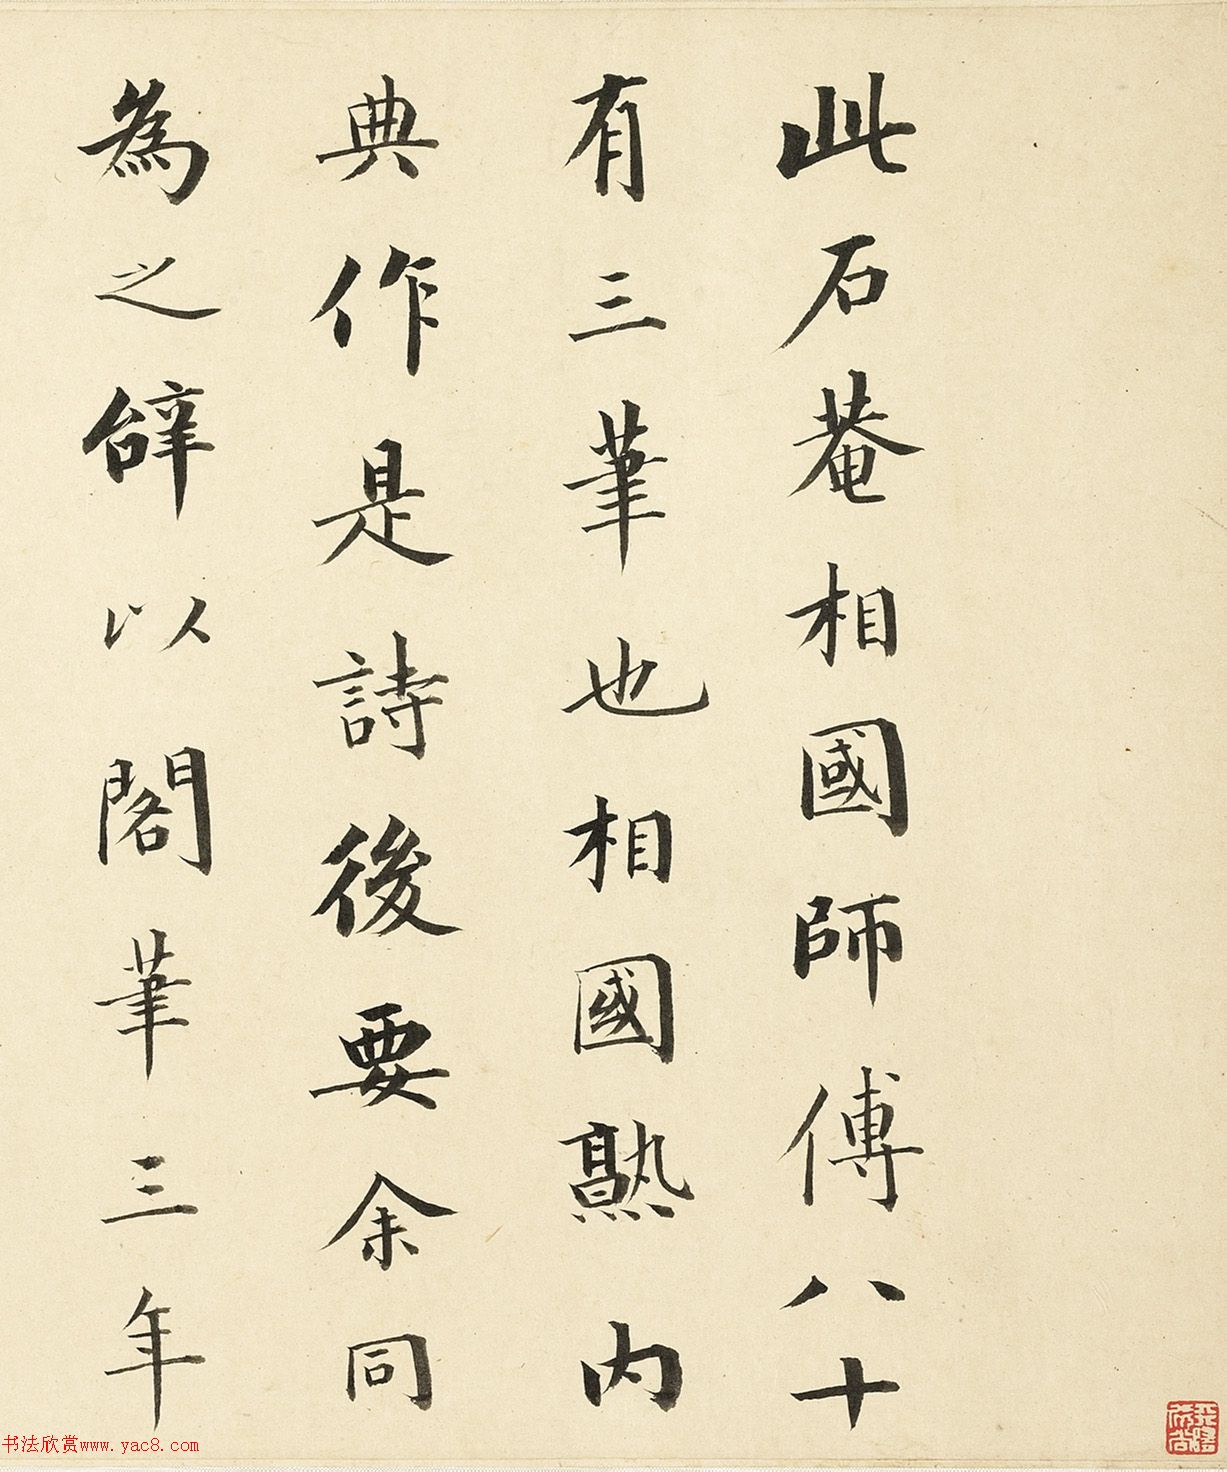 此石菴相國師傅八十
有三筆也相國熟内
典作是詩後要余同
為之辭以閣筆三年
书法欣赏www.yac8.com